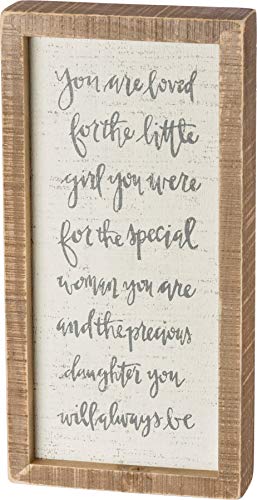 You are loved
for the little
girl you were
for the special
woman you are
and the precious
daughter you
will always be